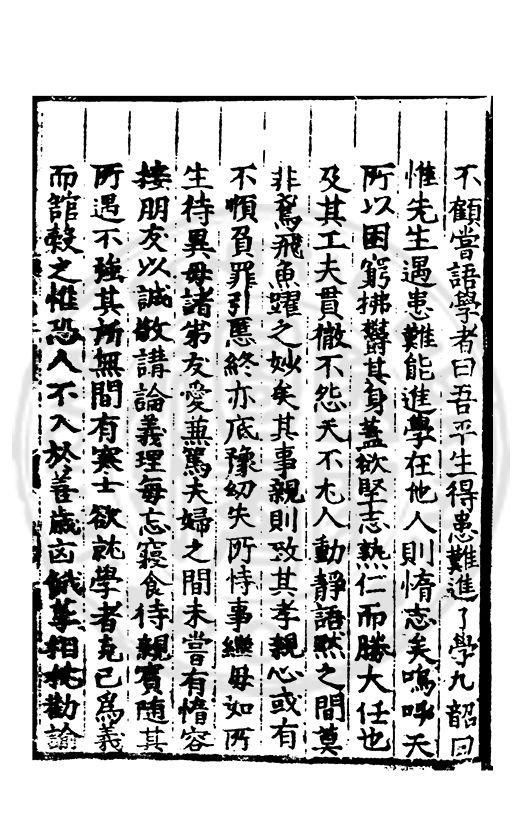 不顧嘗語學者曰吾平生得患難進了學九韶曰
惟先生遇患難能進學在他人則惰志矣嗚呼天
所以困窮拂鬱其身蓋欲堅志熟仁而勝大任也
及其工夫貫徹不怨天不尤人動靜語默之間莫
非鳶飛魚躍之妙矣其事親則致其孝親心或有
不順負罪引慝終亦底豫幼失所恃事繼母如所
生待異母諸弟友愛兼篤夫婦之間未嘗有惰容
接朋友以誠敬講論義理每忘寢食待親賓随其
所遇不強其所無間有寒士欲就學者克己為義
而館穀之惟恐人不入於善歲凶餓莩相枕勸諭